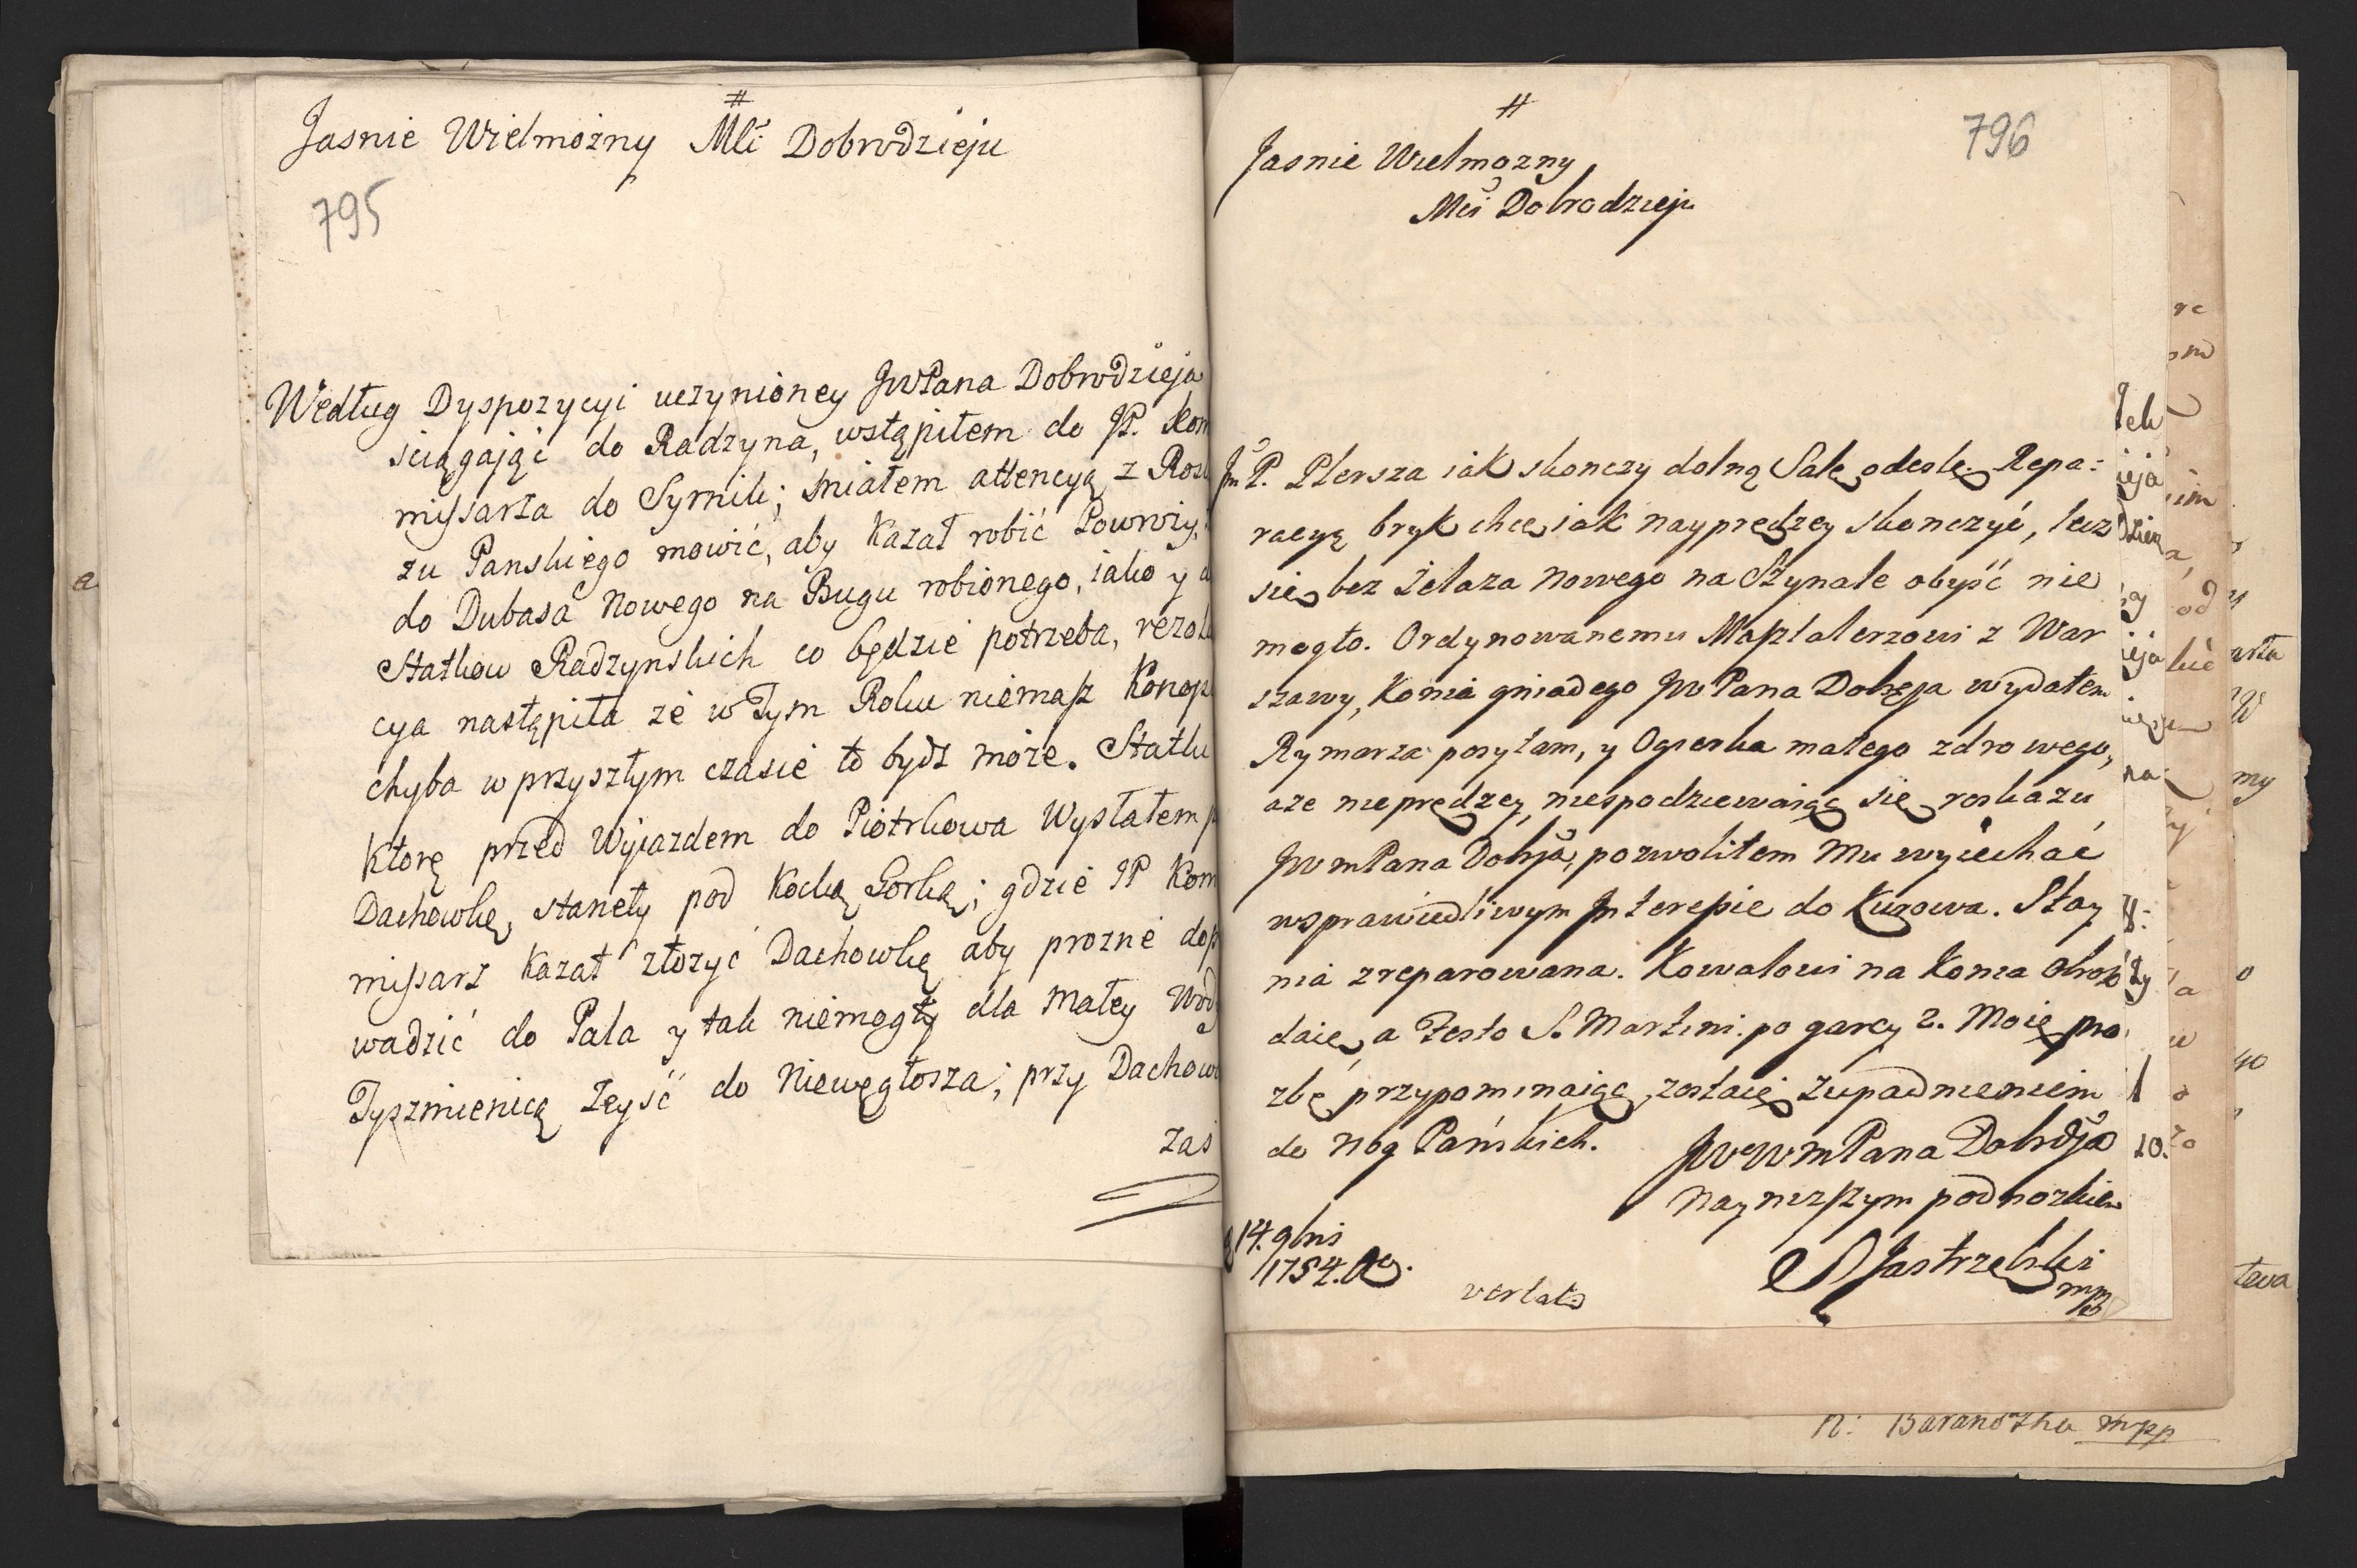 #
Jasnie Wielmożny Mći Dobrodzieju
795
Według Dyspozycyi uczynioney JWPana Dobrodzieja
sciągając do Radzyna, wstąpiłem do JP. Kom
missarza do Syrnik; miałem attencyą z Rosk
zu Panskiego mowić, aby Kazał robić Powrozy,
do Dubasa Nowego na Bugu robionego, iako y d
Statkow Radzynskich co będzie potrzeba, rezolu
cya nastąpiła ze w Tym Roku niemasz Konop
chyba w przyszłym czasie to bydz może. Statki
Ktorę przed Wyiazdem do Piotrkowa Wysłałem p
Dachowkę, stanęły pod Kocką Gorką; gdzie JP Kom
missarz Kazał złozyć Dachowkę aby prozne dop
wadzić do Pala y tak niemogły dla małey Wody
Tyszmienicą Zeyść do Niewęgłosza; przy Dachow
zas
#
796
Jasnie Wielmozny
Mći Dobrodzieju
Jm P. Plersza iak skonczy dolną Salę odeslę. Repa:
racyą bryk chcę iak nayprędzey skonczyć, lecz
się bez Zelaza Nowego na Szynale obyść nie
mogło. Ordynowanemu Masztalerzowi z War
szawy, Konia gniadego JW Pana Dobrja wydałem
Rymarza posyłam, y Ogierka małego zdrowego,
aze nieprędzey, niespodziewaiąc się roskazu
JWmPana Dobrja, pozwoliłem Mu wyiechać
wsprawiedliwym Interesie do Kurowa. Stay
nia zreparowana. Kowalowi na Konia Obrok
daię, a Festo S. Martini. po garcy 2. Moię pro
zbę przypominaiąc, zostaię zupadnieniem
do Nog Pańskich.
JWWmPana Dobrdja
Nayniższym podnozkiem
14. 9bris
1754.
Jastrzębski
mpp
verlate
N: Baranozka mpp